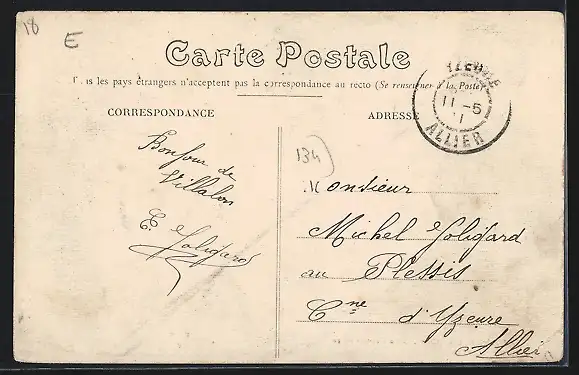 18
E
Carte Postale
T us les pays étrangers n'acceptent pas la correspondance au recto (Se renseigner à la Poste)
CORRESPONDANCE
ADRESSE
YZEURE
11 -5
11
ALLIER
134
Bonjour de
Villalon
E. Joligard
Monsieur
Michel Joligard
au Plessis
Cne d'Yzeure
Allier